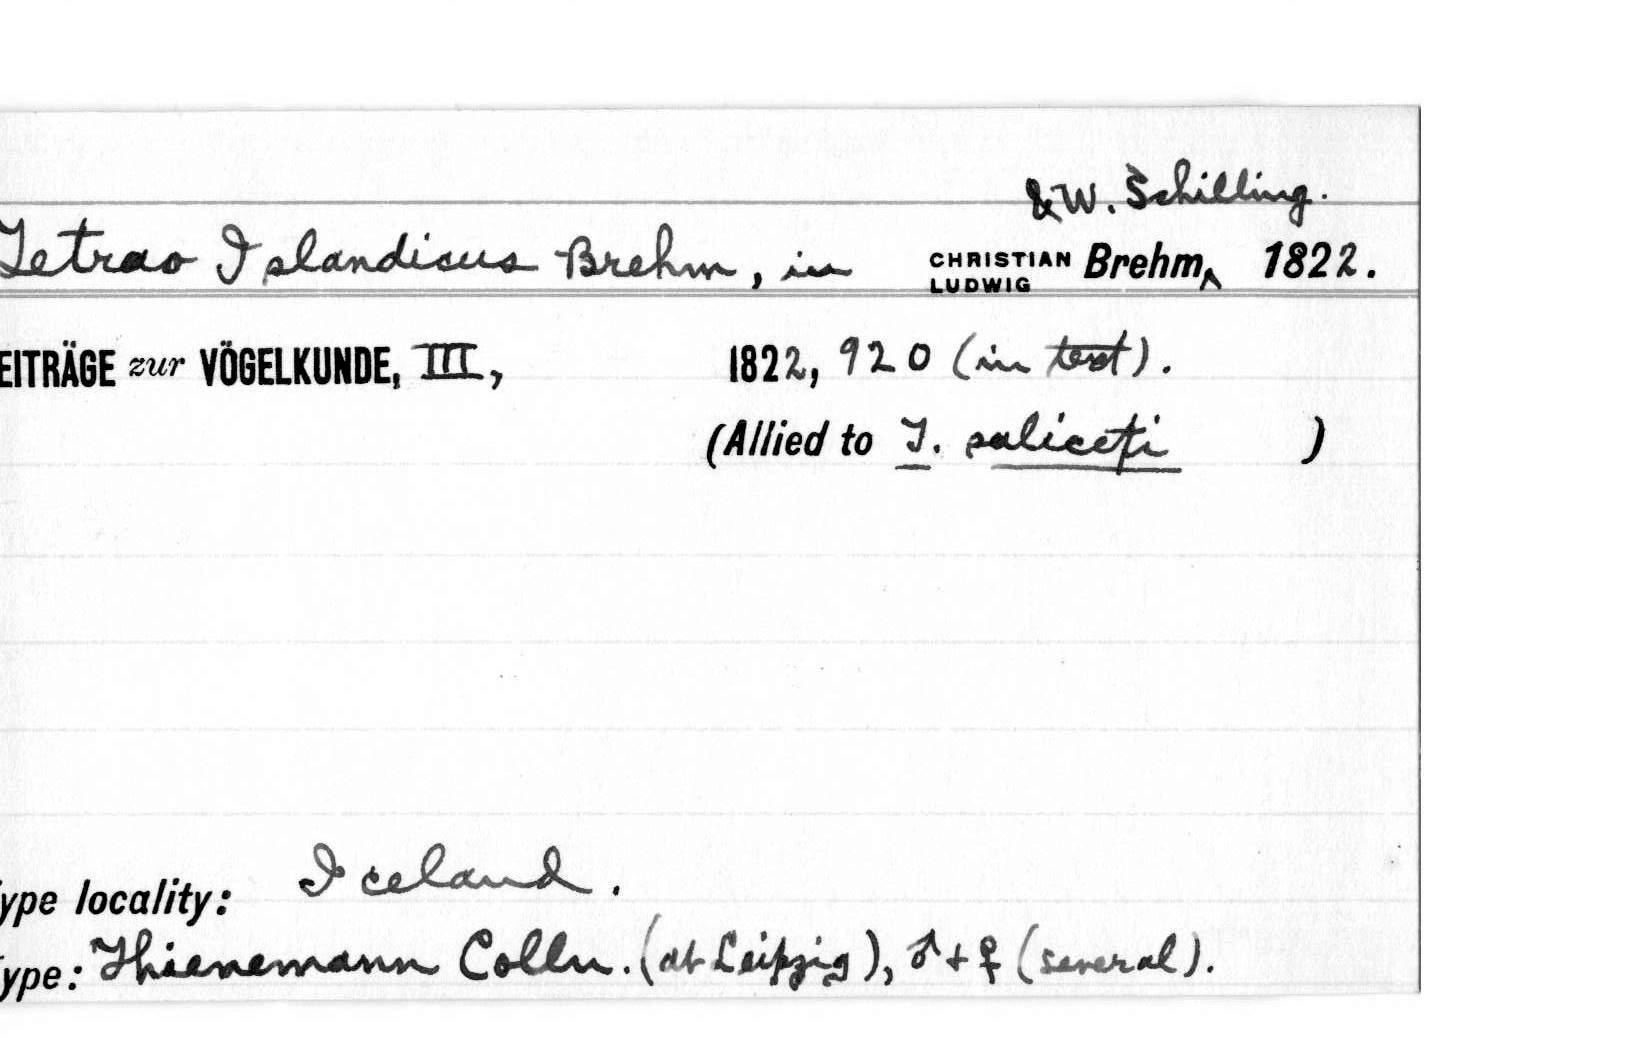 & W. Schilling.
Tetrao Islandicus Brehm, in CHRISTIAN LUDWIG Brehm‸ 1822.
EITRÄGE zur VÖGELKUNDE, III, 1822, 920 (in text).
(Allied to T. saliceti )
ype locality: Iceland.
ype: Thienemann Colln. (at Leipzig), ♂ + ♀ (several).